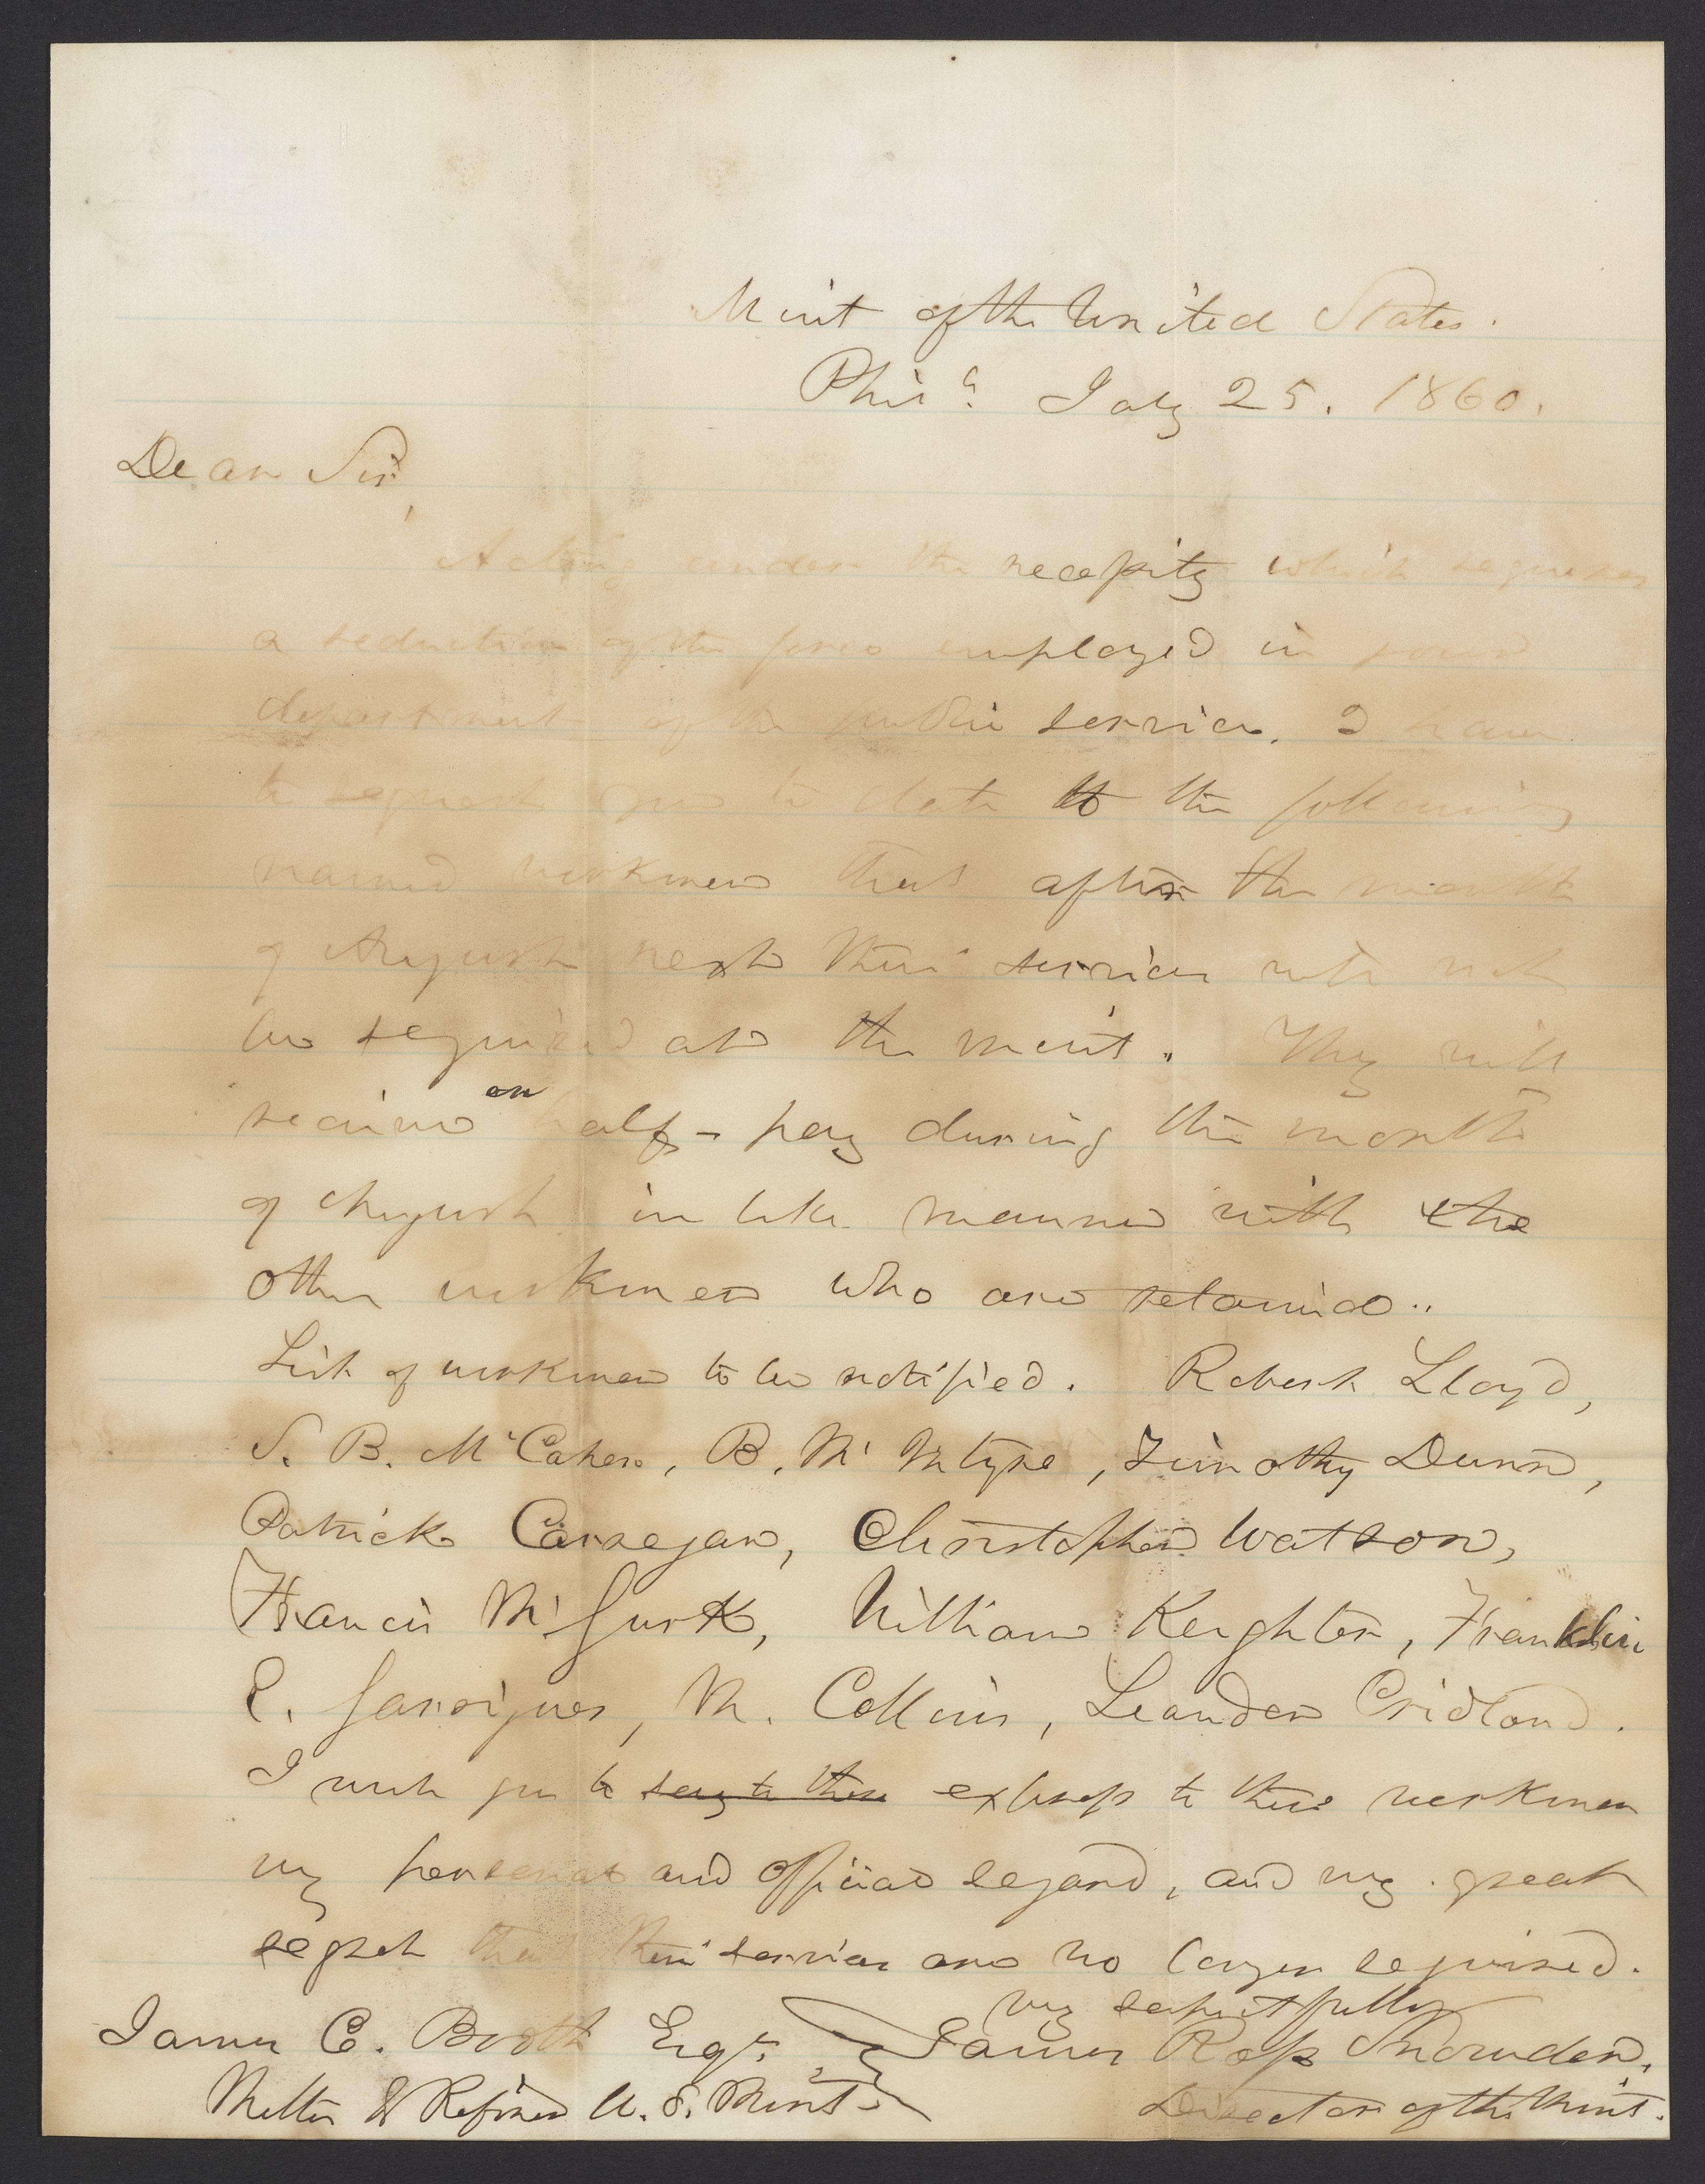 Mint of the United States.
Phil a. July 25. 1860.
Dear Sir,
Acting under the necessity which requires
a reduction of the force employed in your
department of the public service, I have
to request you to state to the following
named workmen that after the month
of August next their services will not
be required at the mint. They will
receive on half-pay during the month
of August in like manner with the
other workmen who are retained.
List of workmen to be notified. Robert Lloyd,
S. B. McCahen, B. McIntyre, Timothy Dunn,
Patrick Carnegan, Christopher Watson,
Francis McGurk, William Keighter, Franklin
P. Garrigues, M. Collins, Leander Cridland.
I wish you to say to them express to these workmen
my personal and official regard, and my great
regret that their services are no longer required.
Very respectfully
James C. Booth Esqr. James Ross Snowden,
Melter & Refiner U. S. Mint. Director of the Mint.